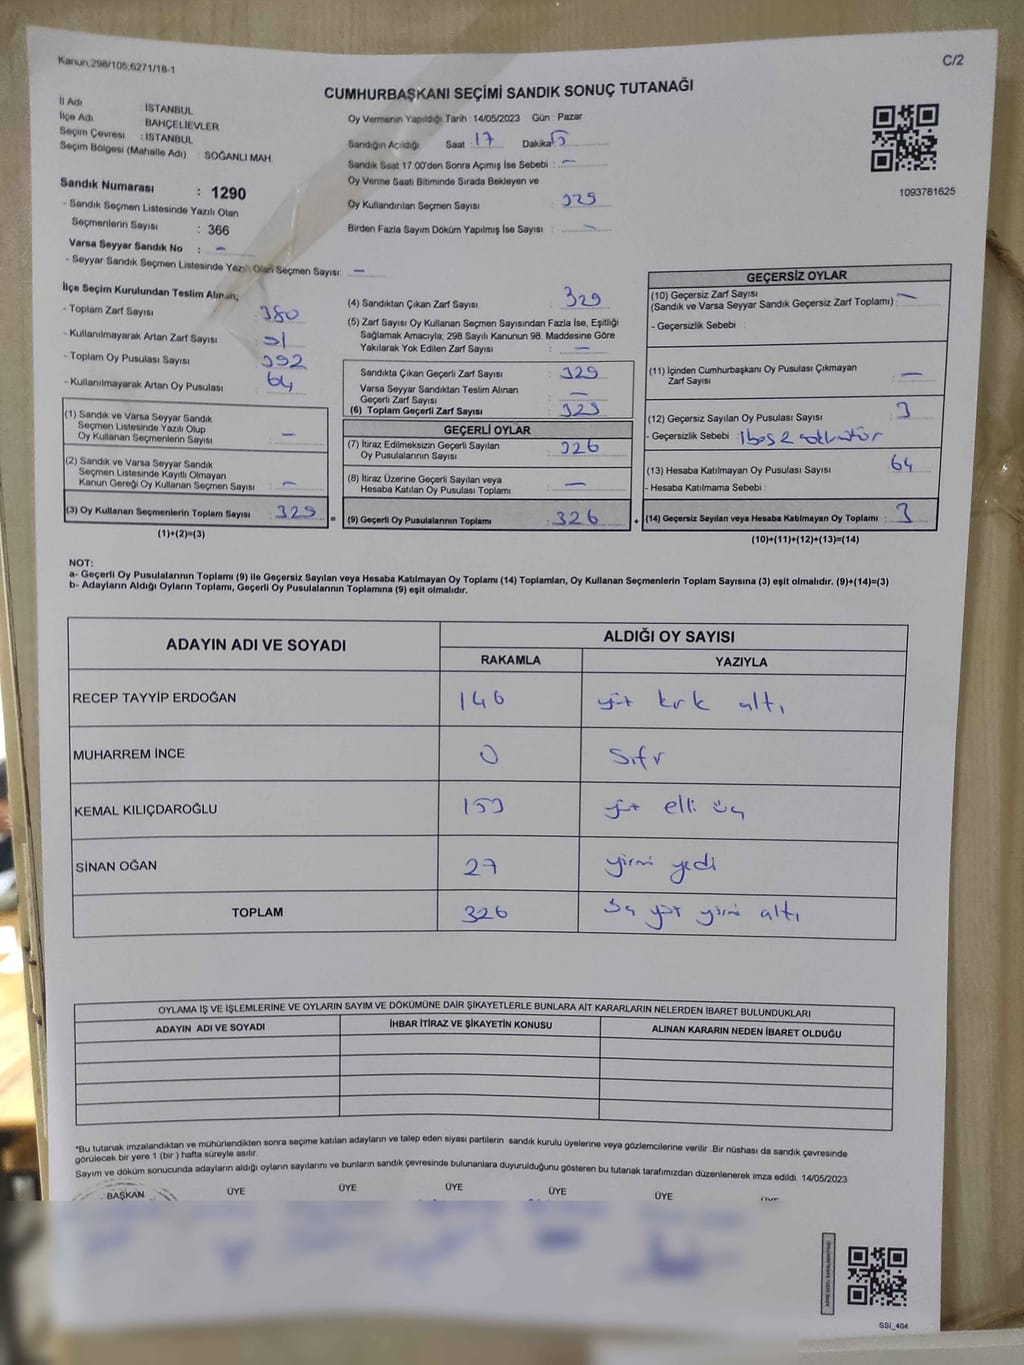 Kanun:298/105;6271/18-1
C/2
CUMHURBAŞKANI SEÇİMİ SANDIK SONUÇ TUTANAĞI
İl Adı : İSTANBUL
İlçe Adı : BAHÇELİEVLER
Seçim Çevresi : İSTANBUL
Seçim Bölgesi (Mahalle Adı) : SOĞANLI MAH.
Oy Vermenin Yapıldığı Tarih :14/05/2023 Gün : Pazar
Sandığın Açıldığı Saat : 17 Dakika 5
Sandık Saat 17.00'den Sonra Açmış İse Sebebi : –
Oy Verme Saati Bitiminde Sırada Bekleyen ve
Oy Kullandırılan Seçmen Sayısı : 329
Birden Fazla Sayım Döküm Yapılmış İse Sayısı : –
1093781625
Sandık Numarası : 1290
- Sandık Seçmen Listesinde Yazılı Olan
Seçmenlerin Sayısı : 366
Varsa Seyyar Sandık No : –
- Seyyar Sandık Seçmen Listesinde Yazılı Olan Seçmen Sayısı: –
İlçe Seçim Kurulundan Teslim Alınan;
- Toplam Zarf Sayısı : 380
- Kullanılmayarak Artan Zarf Sayısı : 51
- Toplam Oy Pusulası Sayısı : 392
- Kullanılmayarak Artan Oy Pusulası : 64
(1) Sandık ve Varsa Seyyar Sandık
Seçmen Listesinde Yazılı Olup
Oy Kullanan Seçmenlerin Sayısı : –
(2) Sandık ve Varsa Seyyar Sandık
Seçmen Listesinde Kayıtlı Olmayan
Kanun Gereği Oy Kullanan Seçmen Sayısı : –
(3) Oy Kullanan Seçmenlerin Toplam Sayısı : 329 =
(1)+(2)=(3)
(4) Sandıktan Çıkan Zarf Sayısı : 329
(5) Zarf Sayısı Oy Kullanan Seçmen Sayısından Fazla İse, Eşitliği
Sağlamak Amacıyla; 298 Sayılı Kanunun 98. Maddesine Göre
Yakılarak Yok Edilen Zarf Sayısı : –
Sandıkta Çıkan Geçerli Zarf Sayısı : 329
Varsa Seyyar Sandıktan Teslim Alınan
Geçerli Zarf Sayısı : –
(6) Toplam Geçerli Zarf Sayısı : 329
GEÇERLİ OYLAR
(7) İtiraz Edilmeksizin Geçerli Sayılan
Oy Pusulalarının Sayısı : 326
(8) İtiraz Üzerine Geçerli Sayılan veya
Hesaba Katılan Oy Pusulası Toplamı : –
(9) Geçerli Oy Pusulalarının Toplamı : 326 +
GEÇERSİZ OYLAR
(10) Geçersiz Zarf Sayısı : –
(Sandık ve Varsa Seyyar Sandık Geçersiz Zarf Toplamı)
- Geçersizlik Sebebi :
(11) İçinden Cumhurbaşkanı Oy Pusulası Çıkmayan
Zarf Sayısı : –
(12) Geçersiz Sayılan Oy Pusulası Sayısı : 3
- Geçersizlik Sebebi : 1 boş 2
(13) Hesaba Katılmayan Oy Pusulası Sayısı : 64
- Hesaba Katılmama Sebebi :
(14) Geçersiz Sayılan veya Hesaba Katılmayan Oy Toplamı : 3
(10)+(11)+(12)+(13)=(14)
NOT:
a- Geçerli Oy Pusulalarının Toplamı (9) ile Geçersiz Sayılan veya Hesaba Katılmayan Oy Toplamı (14) Toplamları, Oy Kullanan Seçmenlerin Toplam Sayısına (3) eşit olmalıdır. (9)+(14)=(3)
b- Adayların Aldığı Oyların Toplamı, Geçerli Oy Pusulalarının Toplamına (9) eşit olmalıdır.
ADAYIN ADI VE SOYADI
ALDIĞI OY SAYISI
RAKAMLA YAZIYLA
RECEP TAYYİP ERDOĞAN 146 yüz kırk altı
MUHARREM İNCE 0 Sıfır
KEMAL KILIÇDAROĞLU 153 yüz elli üç
SİNAN OĞAN 27 yirmi yedi
TOPLAM 326 üç yüz yirmi altı
OYLAMA İŞ VE İŞLEMLERİNE VE OYLARIN SAYIM VE DÖKÜMÜNE DAİR ŞİKAYETLERLE BUNLARA AİT KARARLARIN NELERDEN İBARET BULUNDUKLARI
ADAYIN ADI VE SOYADI İHBAR İTİRAZ VE ŞİKAYETİN KONUSU ALINAN KARARIN NEDEN İBARET OLDUĞU
*Bu tutanak imzalandıktan ve mühürlendikten sonra seçime katılan adayların ve talep eden siyasi partilerin sandık kurulu üyelerine veya gözlemcilerine verilir. Bir nüshası da sandık çevresinde
görülecek bir yere 1 (bir ) hafta süreyle asılır.
Sayım ve döküm sonucunda adayların aldığı oyların sayılarını ve bunların sandık çevresinde bulunanlara duyurulduğunu gösteren bu tutanak tarafımızdan düzenlenerek imza edildi. 14/05/2023
BAŞKAN ÜYE ÜYE ÜYE ÜYE ÜYE ÜYE
SSİ_404